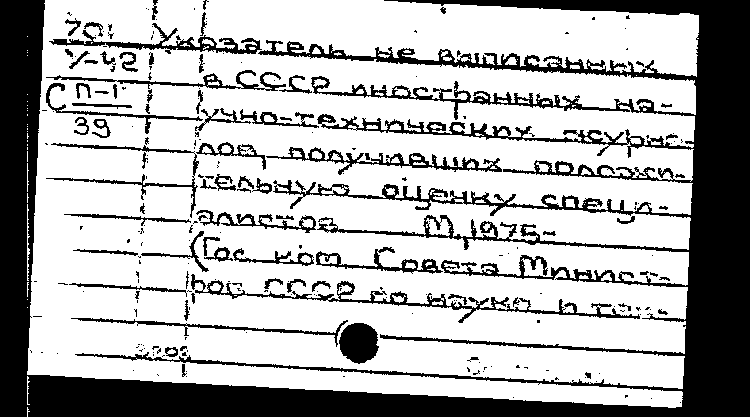 701 Указатель не выписанных
У-42 в СССР иностранных на-
С П-I учно-технических журна-
39 лов, получивших положи-
тельную оценку специ-
алистов М., 1975-
(Гос. ком. Совета Минист-
ров СССР по науке и тех-